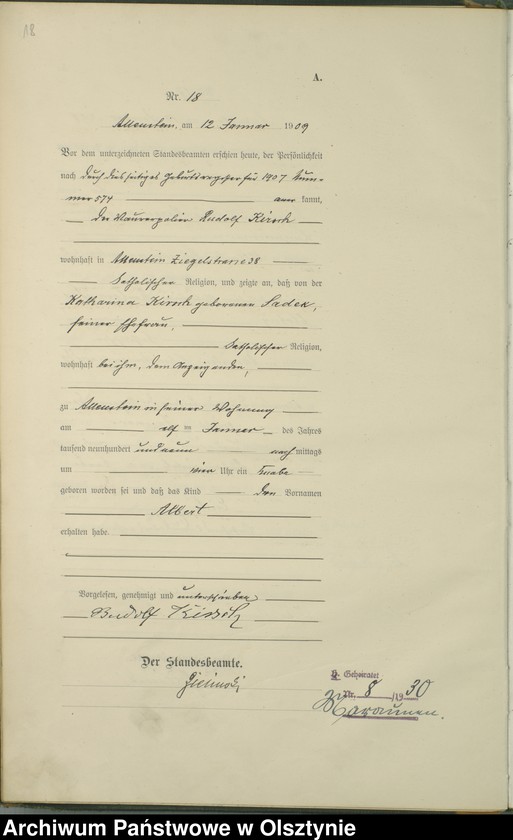 18
A.
Nr. 18
Allenstein, am 12 Januar 1909
Vor dem unterzeichneten Standesbeamten erschien heute, der Persönlichkeit
nach durch diesseitiges Geburtsregister für 1907 Num-
mer 574 aner kannt,
der Maurerpolier Rudolf Kirsch
wohnhaft in Allenstein Ziegelstrasse 38
katholischer Religion, und zeigte an, daß von der
Katharina Kirsch geborenen Sadek,
seiner Ehefrau,
katholischer Religion,
wohnhaft bei ihm, dem Anzeigenden,
zu Allenstein in seiner Wohnung
am elf ten Januar des Jahres
tausend neunhundert und neun nach mittags
um vier Uhr ein Knabe
geboren worden sei und daß das Kind den Vornamen
Albert
erhalten habe.
Vorgelesen, genehmigt und unterschrieben
Rudolf Kirsch
Der Standesbeamte.
h. Geheiratet
Nr. 8 /1930
Maraunen.
Archiwum Państwowe w Olsztynie